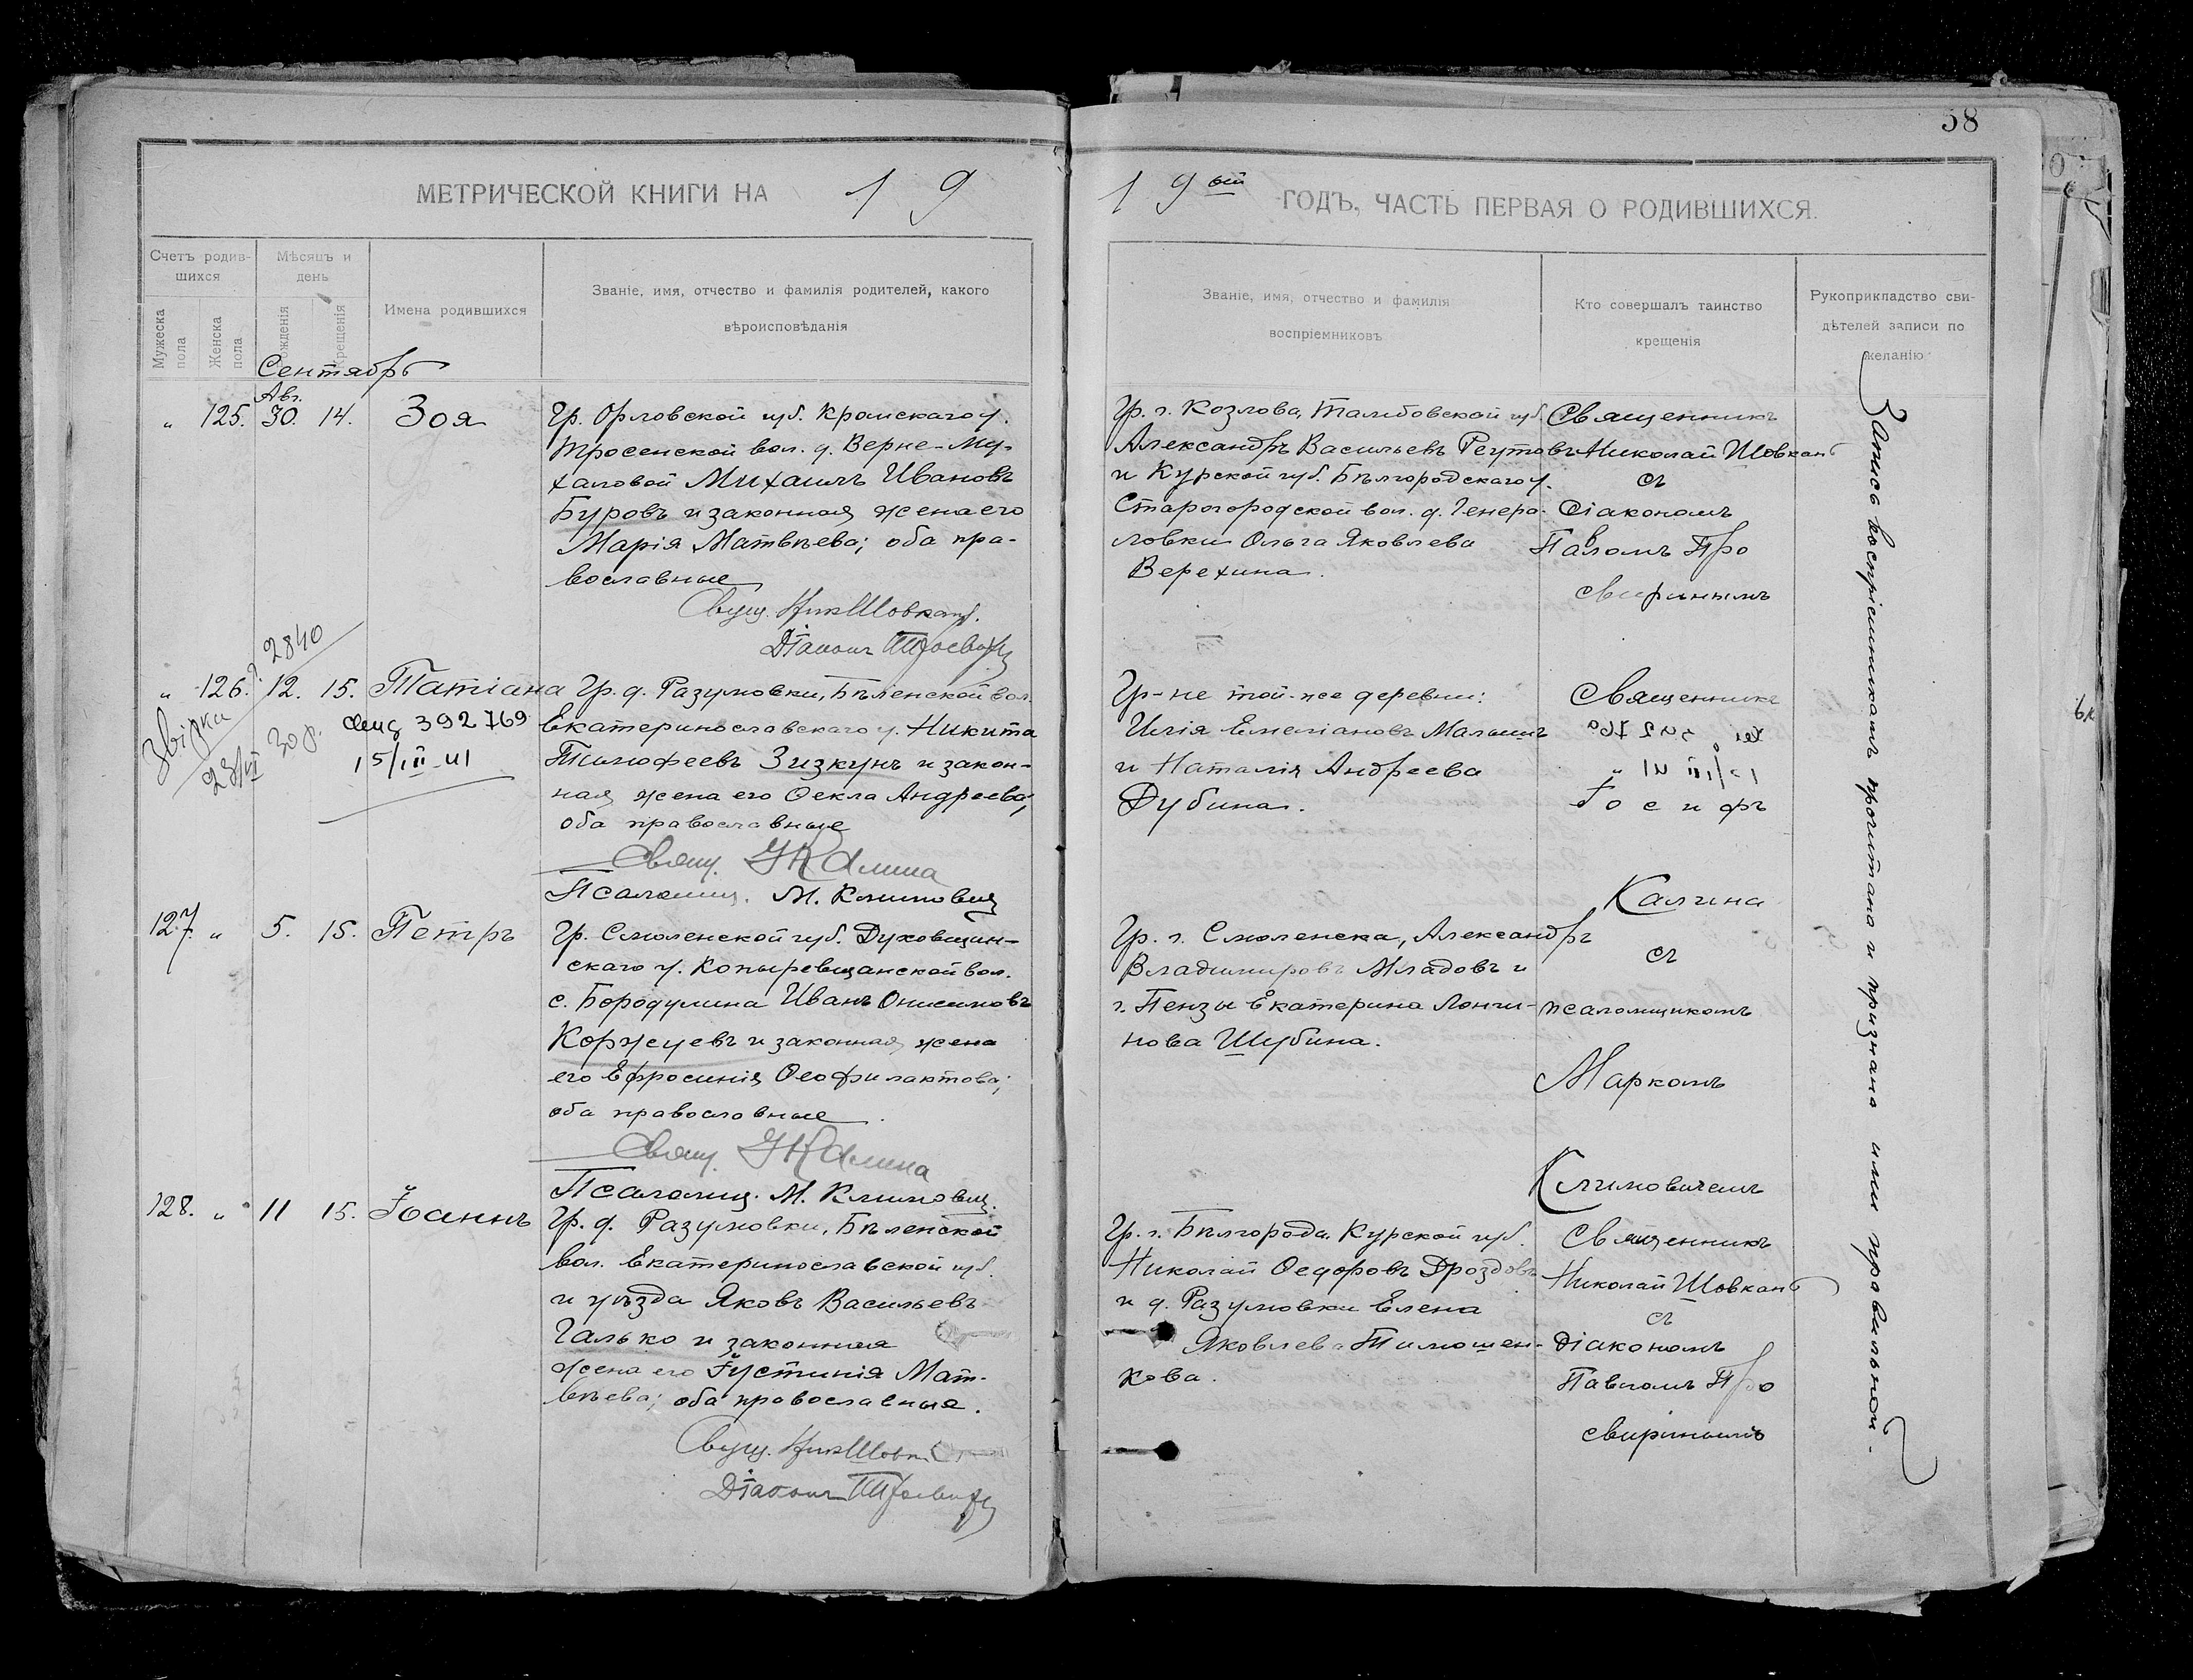 МЕТРИЧЕСКОЙ КНИГИ НА 1 9
Счетъ родив-
шихся
Мужеска
пола
Женска
пола
Мѣсяцъ и
день
рожденія
крещенія
Имена родившихся
Званіе, имя, отчество и фамилія родителей, какого
вѣроисповѣданія
Сентябрь
Авг.
„ 125. 30. 14. Зоя
Гр. Орловской губ. Кромскаго у.
Тросенской вол. д. Верне-Му-
хановой Михаилъ Ивановъ
Буровъ и законная жена его
Марія Матвѣева; оба пра-
вославные
Свящ. Ник Шовкань
Діаконъ
2840
„ 126. 12. 15. Татіана
Звірка
23/VI 30 р.
свид 392769
15/III-41
Гр. д. Разумовки, Бѣленской вол.
Екатеринославскаго у. Никита
Тимофеевъ Зизкунъ и закон-
ная жена его Ѳекла Андреева;
оба православные
Свящ. Калина
Псаломщ. М. Климович
127. „ 5. 15. Петръ
Гр. Смоленской губ. Духовщин-
скаго у. Копыревщанской вол.
с. Бородулина Иванъ Онисимовъ
Коржуевъ и законная жена
его Ефросинія Ѳеофилактова;
оба православные.
Свящ. Калина
Псаломщ. М. Климовищ.
128. „ 11 15. Іоаннъ
Гр. д. Разумовки, Бѣленской
вол. Екатеринославской губ.
и уѣзда Яковъ Васильевъ
Галько и законная
жена его Іустинія Мат-
вѣева; оба православные.
Свящ. Ник Шовк
Діаконъ
58
1 9ый ГОДЪ, ЧАСТЬ ПЕРВАЯ О РОДИВШИХСЯ.
Званіе, имя, отчество и фамилія
воспріемниковъ
Кто совершалъ таинство
крещенія
Рукоприкладство сви-
дѣтелей записи по
желанію
Гр. г. Козлова, Тамбовской губ.
Александръ Васильевъ Реутовъ
и Курской губ. Бѣлгородскаго у.
Старогородской вол. д. Генера-
ловки Ольга Яковлева
Верехина.
Священникъ
Николай Шовкань
съ
Діакономъ
Павломъ Про
свиринымъ
Гр-не той-же деревни:
Илія Емеліановъ Малышъ
и Наталія Андреева
Дубина.
Священникъ
Іосифъ
Калина
съ
псаломщикомъ
Маркомъ
Климовичемъ
Гр. г. Смоленска, Александръ
Владимировъ Младовъ и
г. Пензы Екатерина Лонги-
нова Шубина.
Гр. г. Бѣлгорода, Курской губ.
Николай Ѳедоровъ Дроздовъ
и д. Разумовки Елена
Яковлева Тимошен-
кова.
Священникъ
Николай Шовкань
съ
Діакономъ
Павломъ Про
свиринымъ
Запись воспріемникамъ прочитана и признана ими правильной.